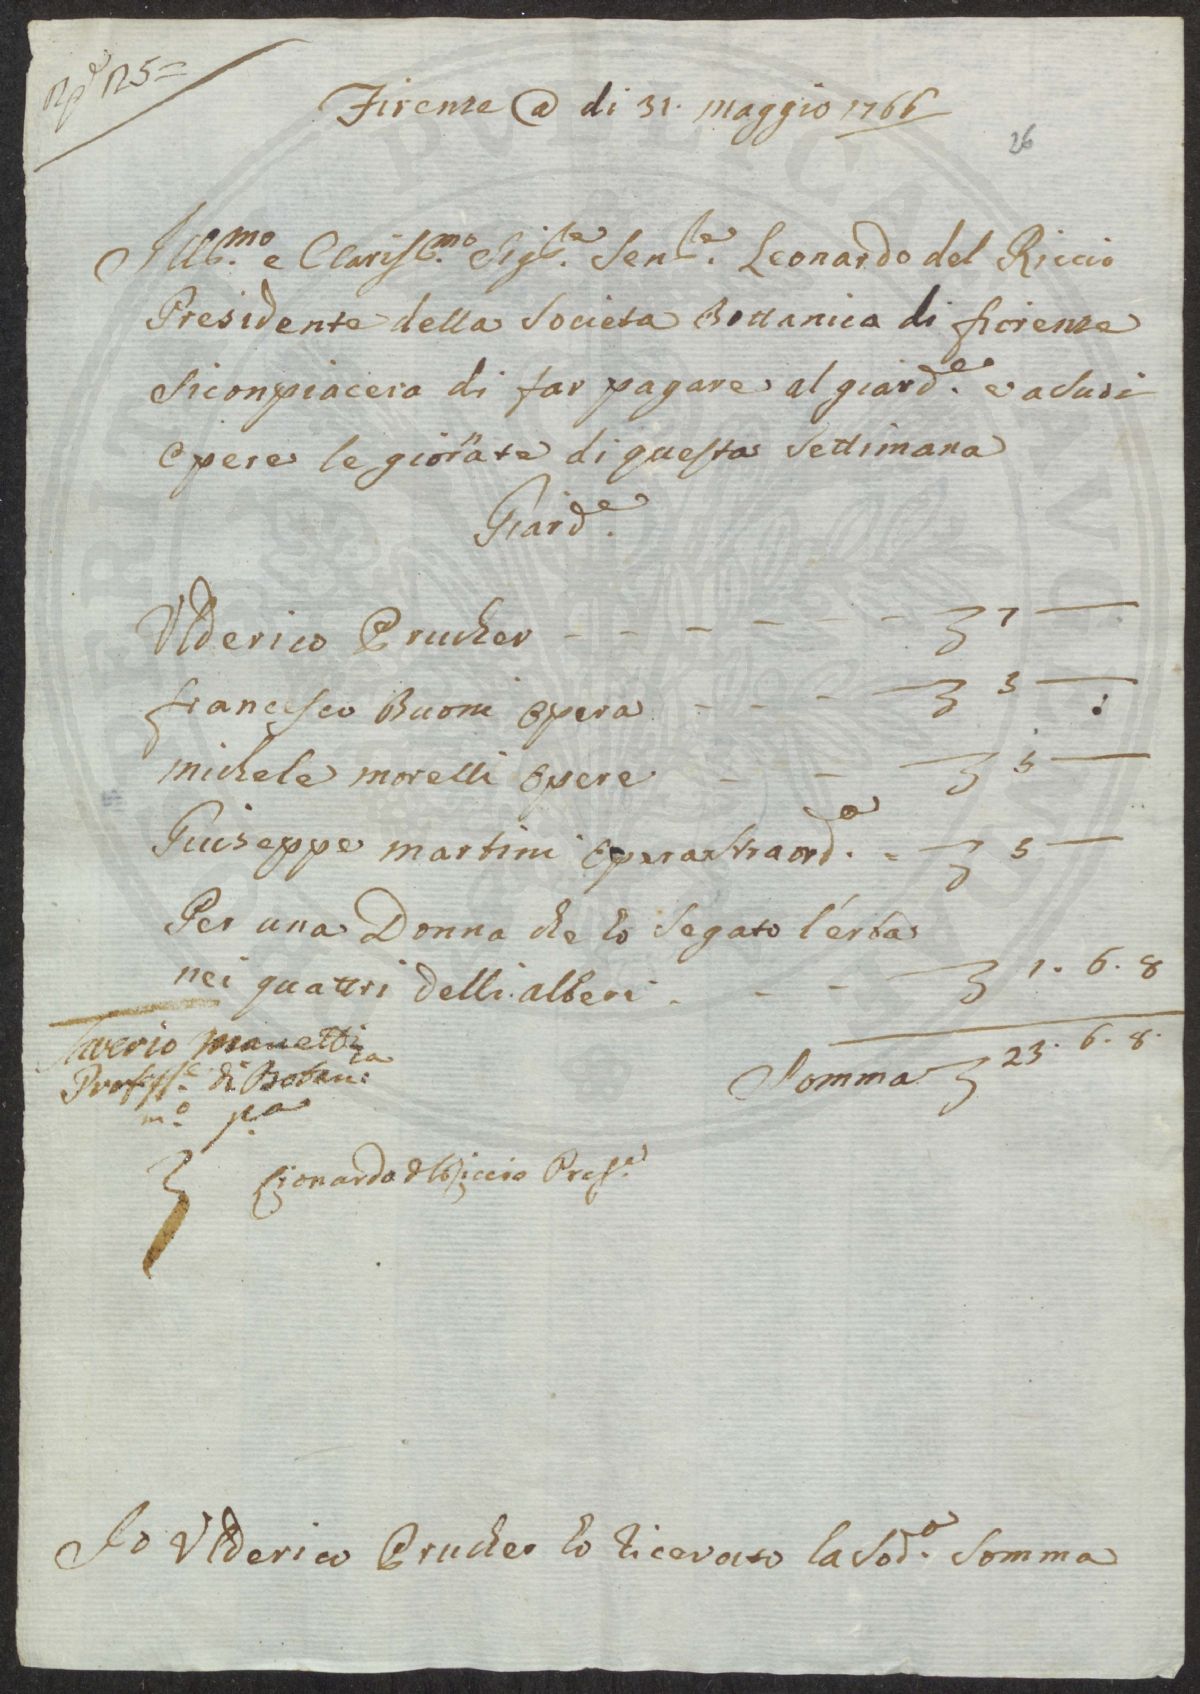 125
Firenze a di 31. maggio 1766
26
Ill.mo e Claris.mo Sig.re Sen.re Leonardo del Riccio
Presidente della Societa Bottanica di fiorenze
Siconpiacera di far pagare al giard.e e a suoi
opere le giornate di questa Settimana
Giard.e
Vlderico Prucher - - - - - - - 7 —
francesco Buoni opera - - - - 5 —
michele morelli opere - - - 5 —
Guiseppe martini opera straord.a - 5 —
Per una Donna che ho Segato l'erba
nei quattri delli alberi - - - 1. 6. 8
Saverio Manetti
Profess.e di Botan.ca
m.o p.a
Somma 23. 6. 8.
Lionardo del Riccio Pres.e
Io Vlderico Prucher ho ricevuto la Sod.a Somma